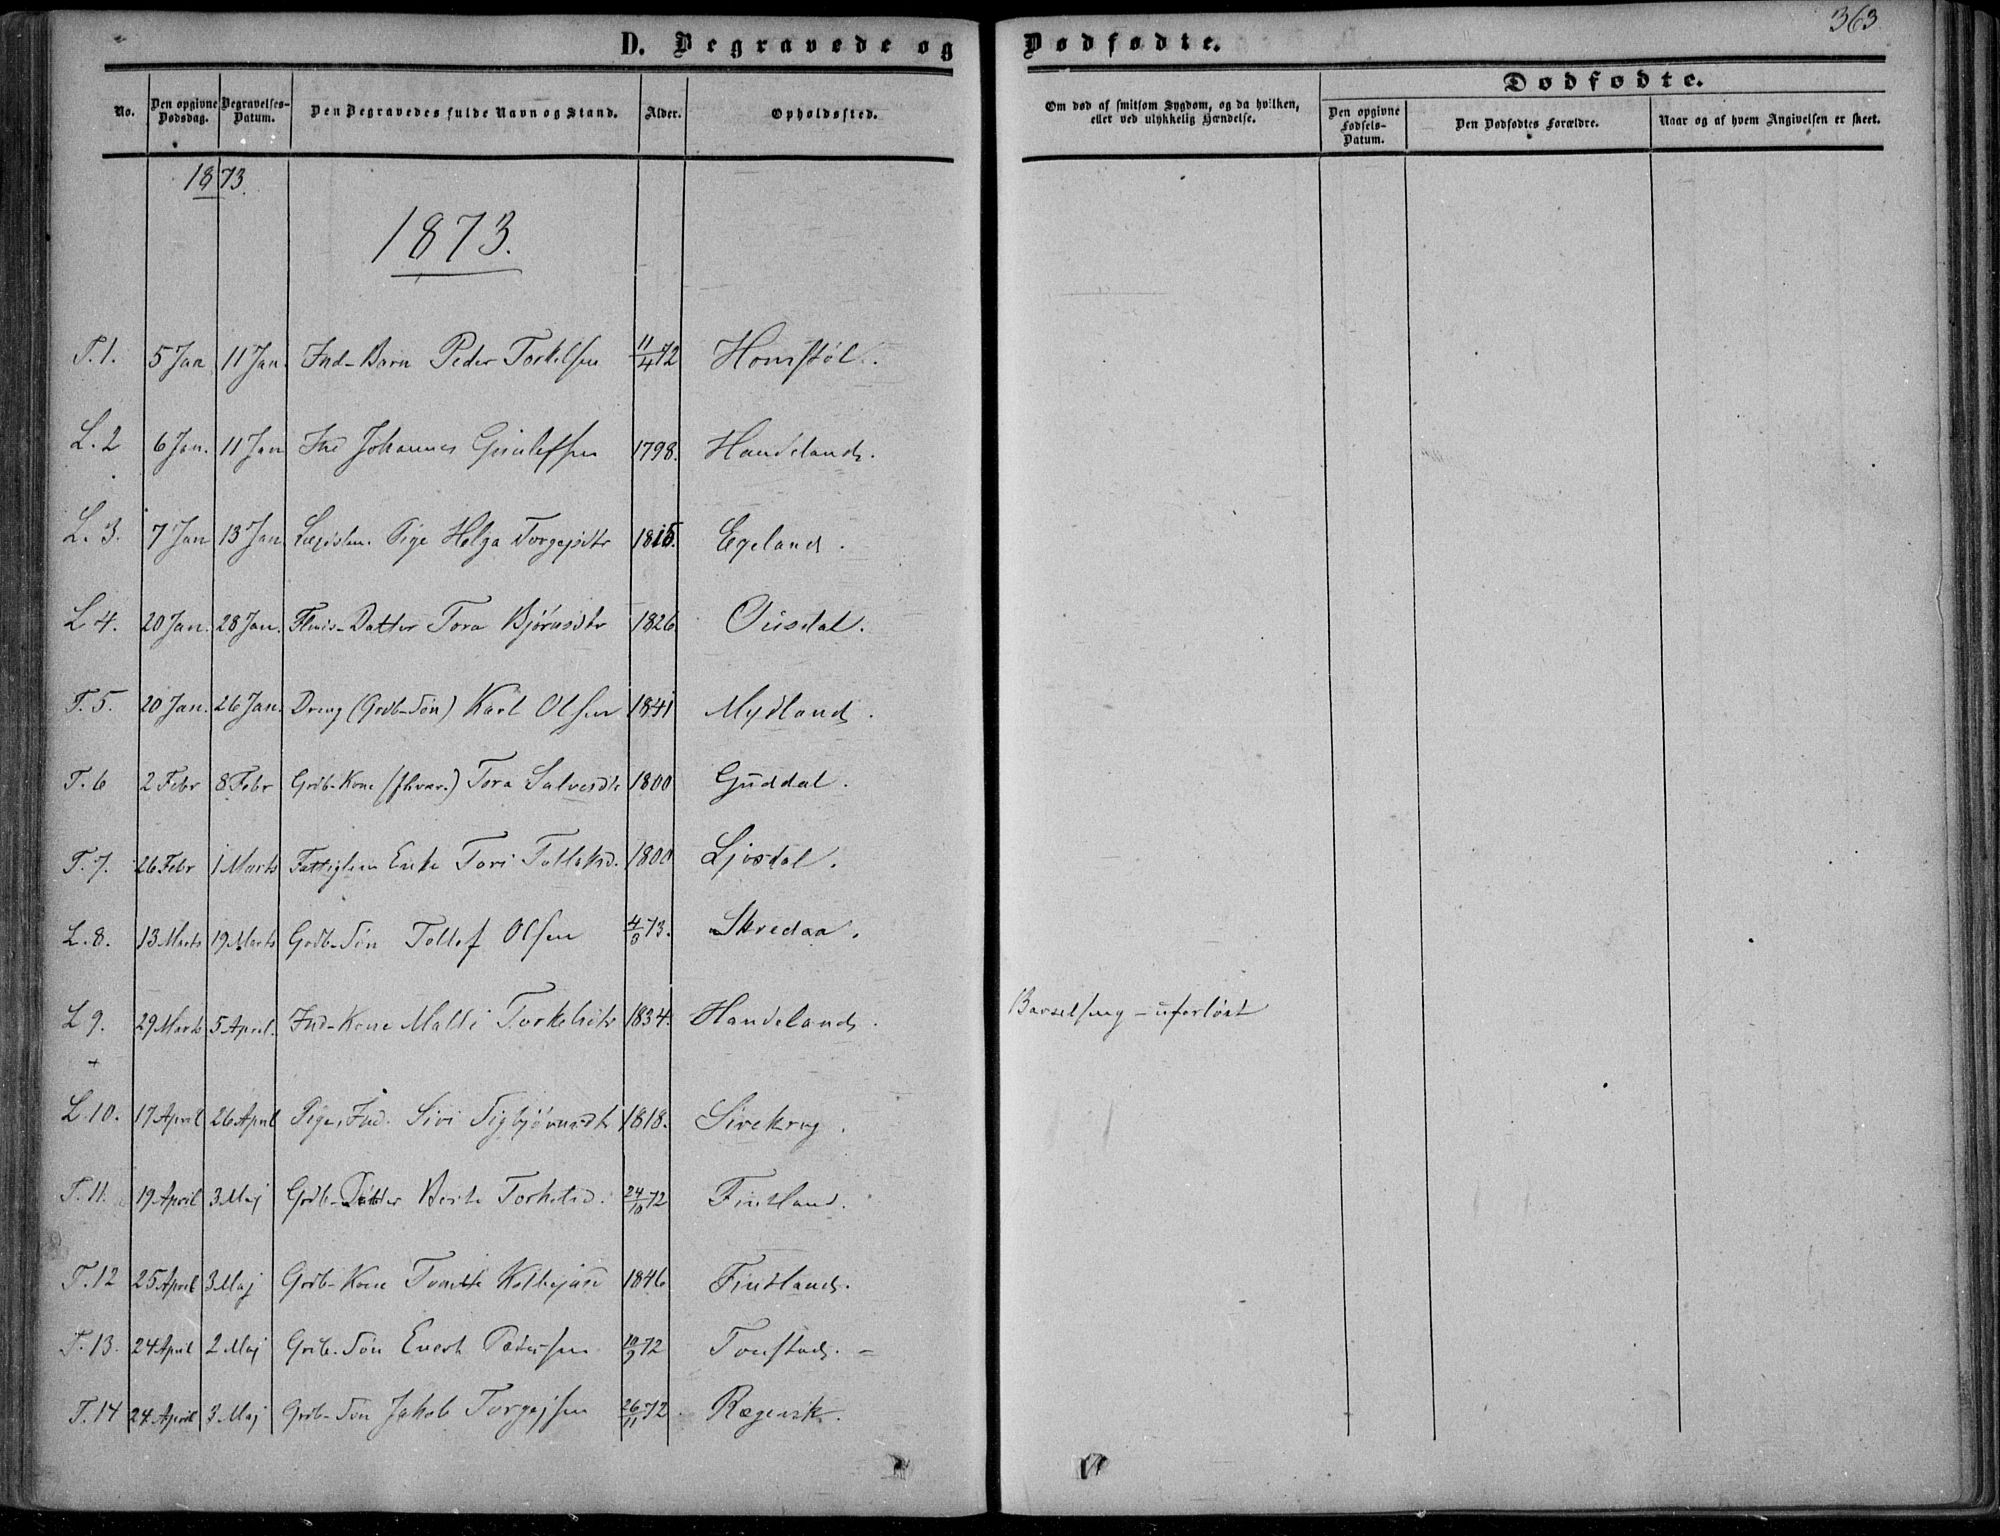 363.
D. Begravede og Dødfødte.
No. Den opgivne Dødsdag. Begravelses-Datum. Den Begravedes fulde Navn og Stand. Alder. Opholdssted.
Om død af smitsom Sygdom, og da hvilken, eller ved ulykkelig Hændelse.
Dødfødte.
Den opgivne Fødsels-Datum. Den Dødfødtes Forældre. Naar og af hvem Angivelsen er skeet.
1873.
1873.
T. 1. 5 Jan 11 Jan. Ind-Barn Peder Torkelsen 11/4 72 Homstøl.
L. 2 6 Jan. 11 Jan Johannes 1798. Handeland.
L. 3. 7 Jan 13 Jan Pige Helga Torgejsdtr 1815. Egeland.
L 4. 20 Jan. 28 Jan. Datter Tora Bjørnsdtr 1826. Ousdal.
T. 5. 20 Jan. 26 Jan. Dreng (Grdb-Søn) Karl Olsen 1841 Mydland.
T. 6 2 Febr 8 Febr Grdb-Kone Tora Salvesdtr 1800 Guddal.
T. 7. 26 Febr 1 Marts Fattiglem Enke Tori Tollaksd. 1800 Ljosdal.
L. 8. 13 Marts 19 Marts Grdb-Søn Tollef Olsen 73. Skredaa.
L 9. 29 Marts 5 April. Ind-Kone Malli Torkelsdtr 1834. Handeland. Barselseng - uforløst
L. 10. 17 April 26 April Pige, Ind. Sivi Sigbjørnsdtr 1818. Sirekrog.
T. 11. 19 April 3 Maj Grdb-Datter Berte Torkelsd. 24/10 72 Fintland.
T. 12 25 April 3 Maj Grdb-Kone 1846 Fintland.
T. 13. 24 April 2 Maj Grdb-Søn Evert Pedersen 10/9 72 Tonstad. -
T. 14 24 April 3 Maj Grdb-Søn Jakob Torgejsen 26/11 72. Rægevik.